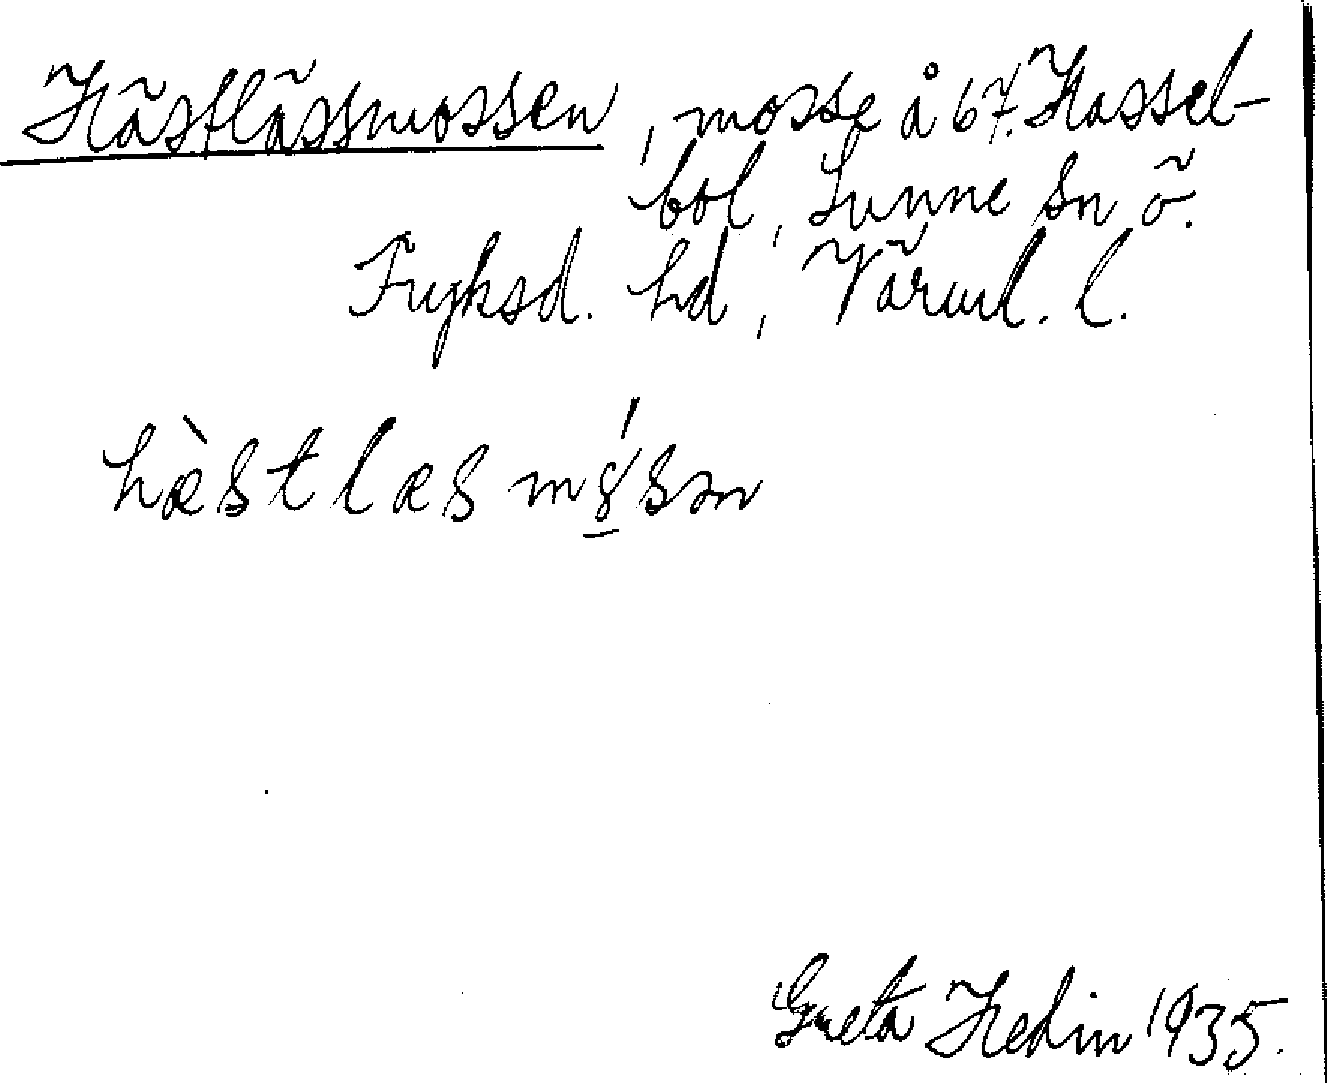 Hästlässmossen, mosse å 67. Hassel-
bol, Sunne sn ö.
Fryksd. hd, Värml. l.
hæ̀stlæs mɤ̠́sən
Greta Hedin 1935.